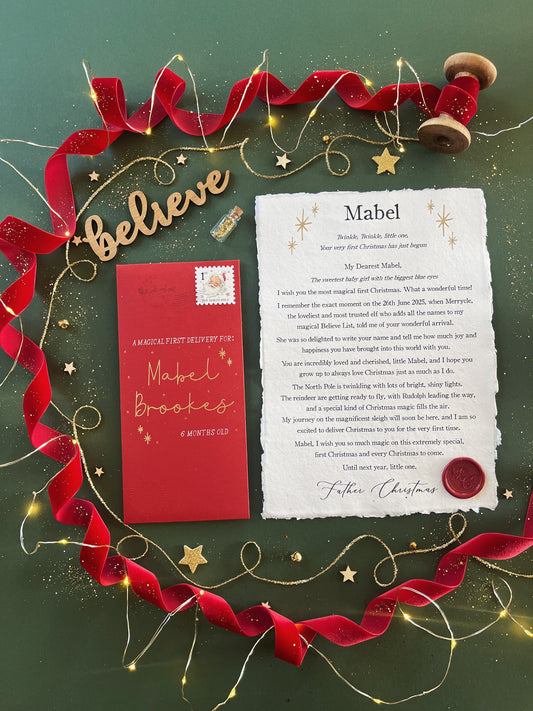 believe
A MAGICAL FIRST DELIVERY FOR:
Mabel
Brookes
6 MONTHS OLD
Mabel
Twinkle, Twinkle, little one,
Your very first Christmas has just begun
My Dearest Mabel,
The sweetest baby girl with the biggest blue eyes
I wish you the most magical first Christmas. What a wonderful time!
I remember the exact moment on the 26th June 2025, when Merrycle,
the loveliest and most trusted elf who adds all the names to my
magical Believe List, told me of your wonderful arrival.
She was so delighted to write your name and tell me how much joy and
happiness you have brought into this world with you.
You are incredibly loved and cherished, little Mabel, and I hope you
grow up to always love Christmas just as much as I do.
The North Pole is twinkling with lots of bright, shiny lights.
The reindeer are getting ready to fly, with Rudolph leading the way,
and a special kind of Christmas magic fills the air.
My journey on the magnificent sleigh will soon be here, and I am so
excited to deliver Christmas to you for the very first time.
Mabel, I wish you so much magic on this extremely special,
first Christmas and every Christmas to come.
Until next year, little one,
Father Christmas